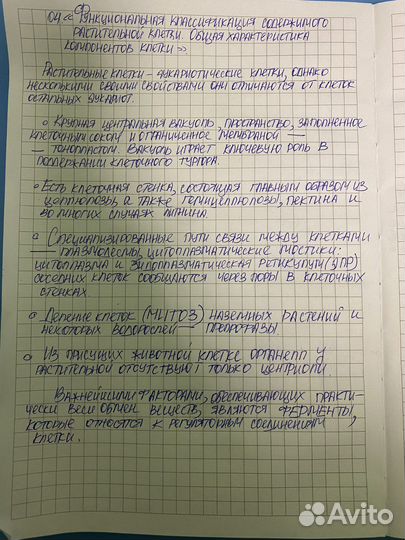 04 « Функциональная классификация содержимого
растительной клетки. Общая характеристика
компонентов клетки »
Растительные клетки - эукариотические клетки, однако
несколькими своими свойствами они отличаются от клеток
остальных эукариот.
• Крупная центральная вакуоль, пространство, заполненное
клеточным соком и ограниченное мембраной —
— тонопластом. Вакуоль играет ключевую роль в
поддержании клеточного тургора.
• Есть клеточная стенка, состоящая главным образом из
целлюлозы, а также гемицеллюлозы, пектина и
во многих случаях лигнина.
• Специализированные пути связи между клетками
— плазмодесмы, цитоплазматические мостики:
цитоплазма и эндоплазматическая ретикулум (ЭПР)
соседних клеток сообщаются через поры в клеточных
стенках.
• Деление клеток (МИТОЗ) наземных растений и
некоторых водорослей — препрофазы
• Из присущих животной клетке органелл у
растительной отсутствуют только центриоли
Важнейшими факторами, обеспечивающих практи-
чески весь обмен веществ, являются ФЕРМЕНТЫ,
которые относятся к регуляторным соединениям
клетки.
Avito